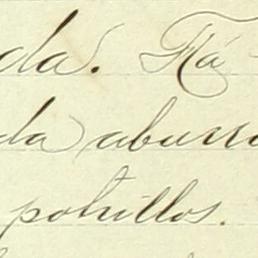 da. Há
da aburri
potrillos.